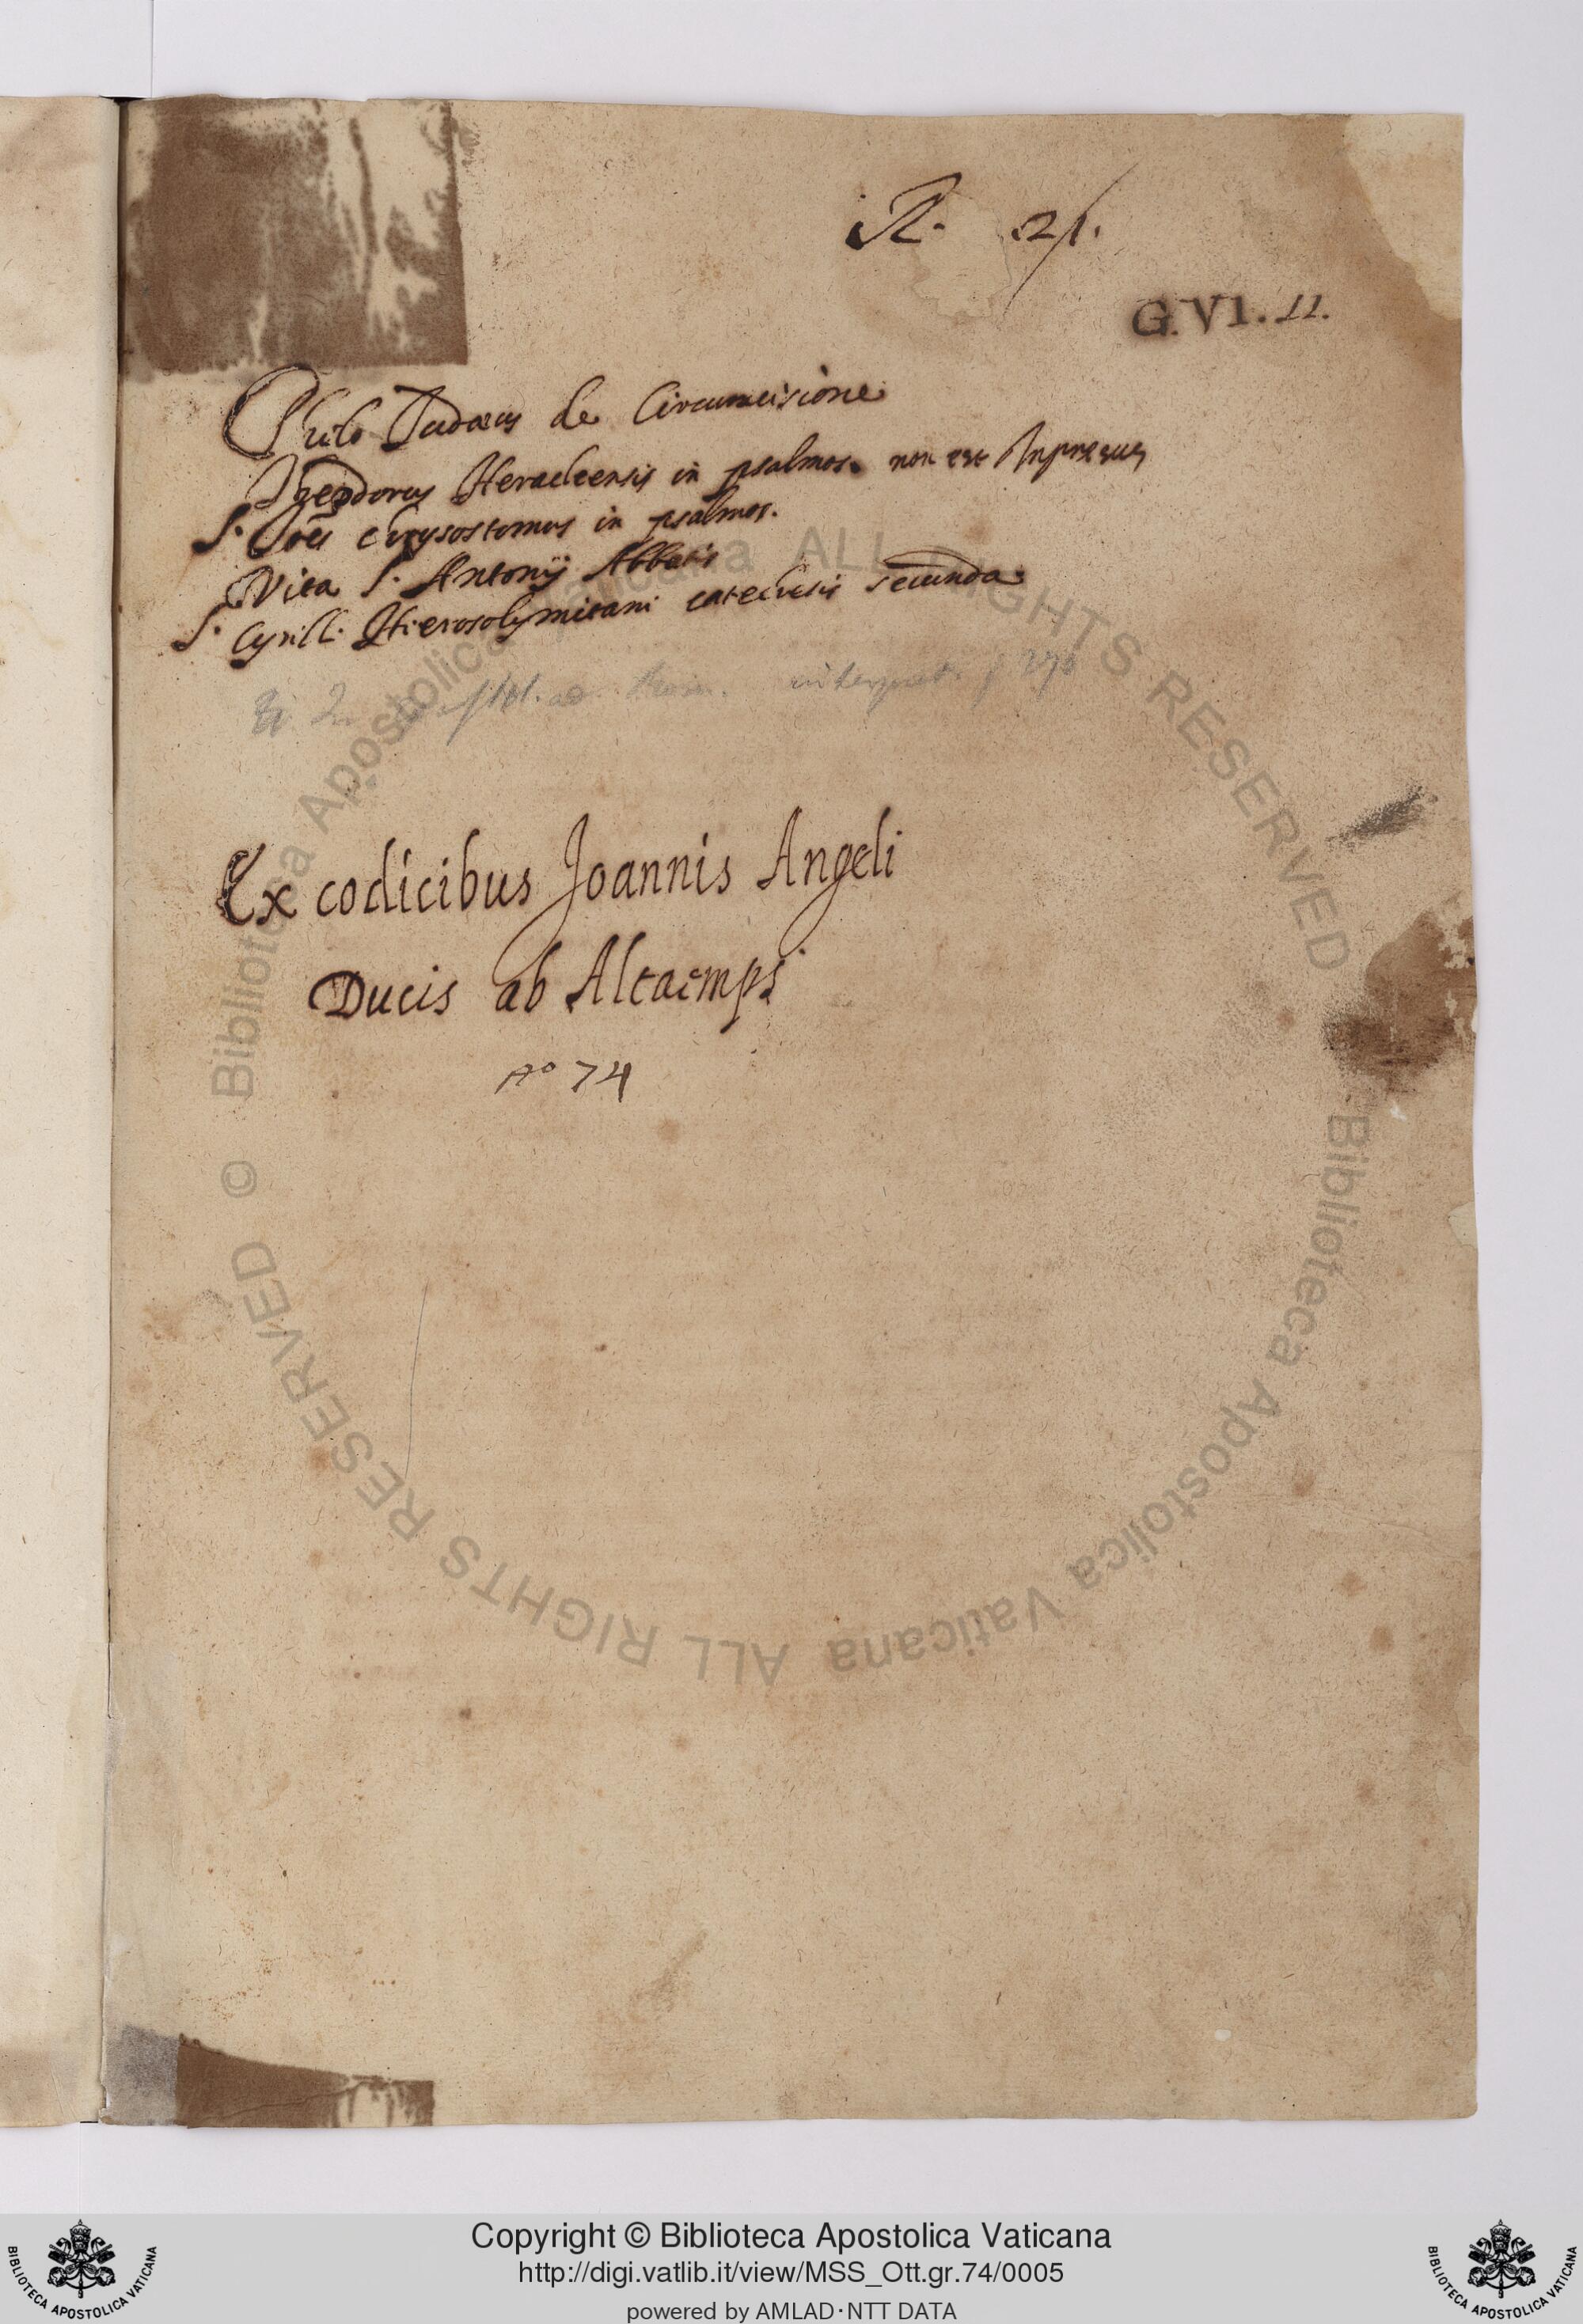 R. 21.
G.VI.11.
Philo Judæus de Circumcisione
Theodorus Heracleensis in psalmos. non est Inpressus
S. Joẽs chrysostomus in psalmos.
Vita S. Antonij Abbatis
S. Cyrilli Hierosolymitani catechesis secunda
Ex codicibus Joannis Angeli
Ducis ab Altaemps
Aº 74
© Biblioteca Apostolica Vaticana ALL RIGHTS RESERVED
Biblioteca Apostolica Vaticana ALL RIGHTS RESERVED
Copyright © Biblioteca Apostolica Vaticana
http://digi.vatlib.it/view/MSS_Ott.gr.74/0005
powered by AMLAD·NTT DATA
BIBLIOTECA APOSTOLICA VATICANA
BIBLIOTECA APOSTOLICA VATICANA